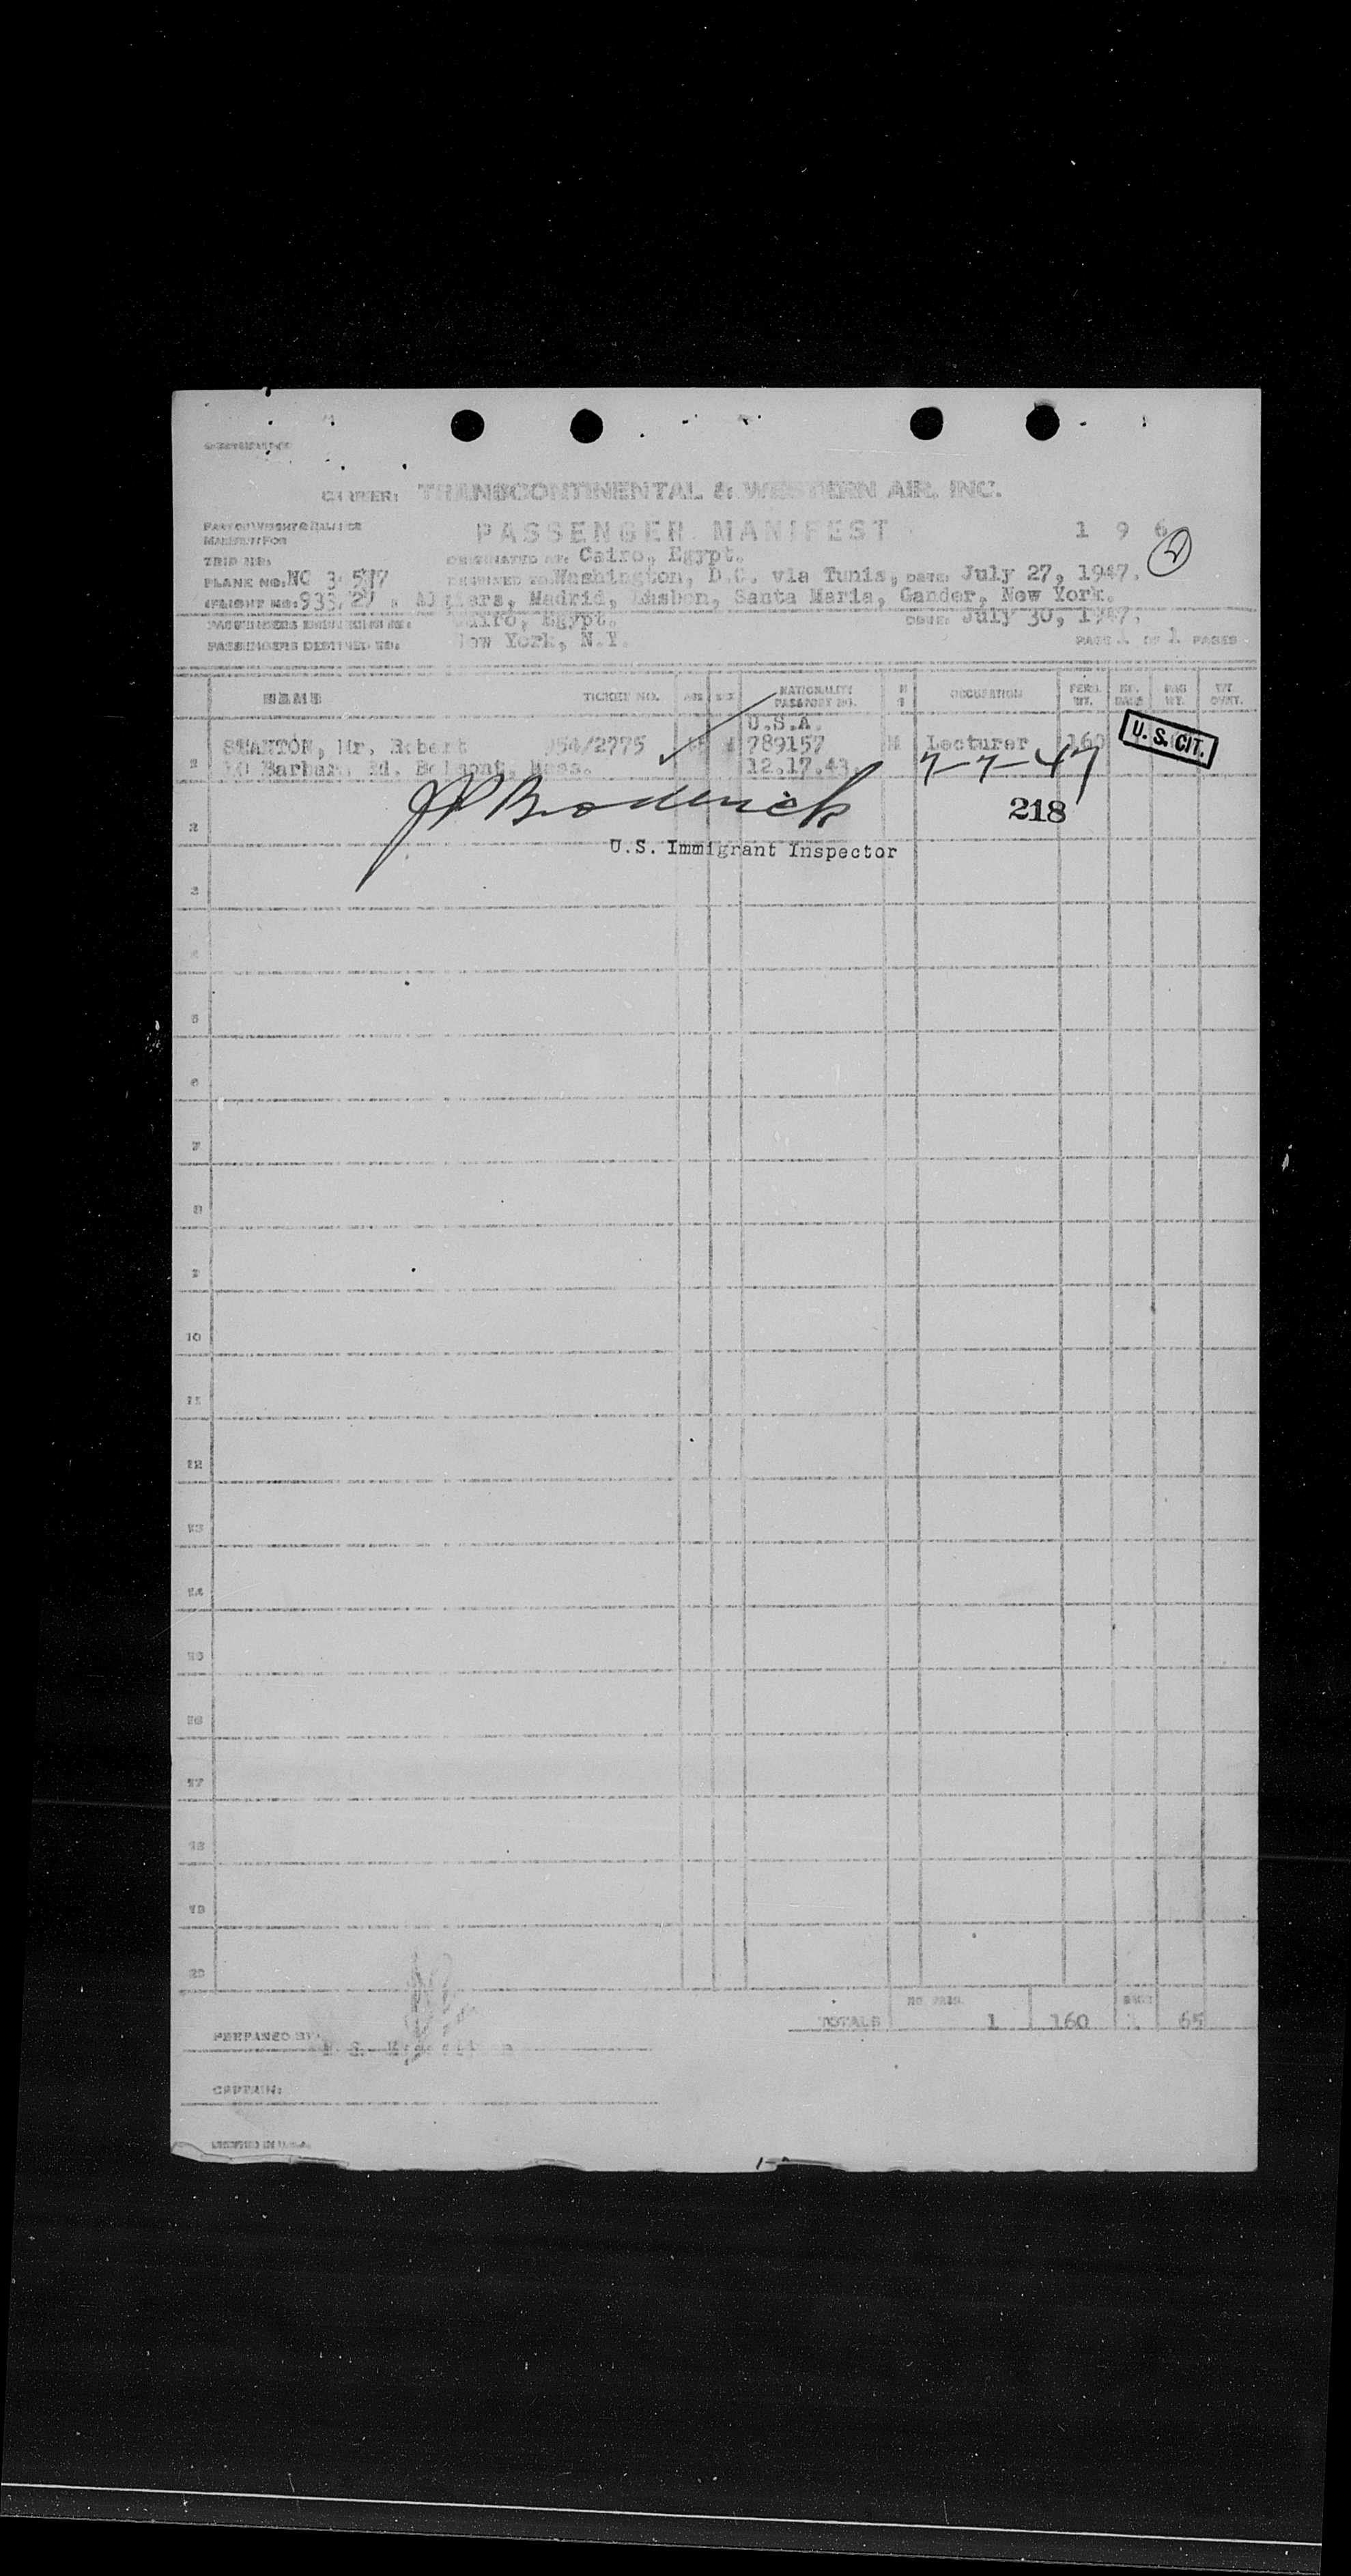 CARRIER: TRANSCONTINENTAL & WESTERN AIR, INC.
PASSENGER MANIFEST 1 9 6
2
TRIP NO.
ORIGINATED AT: Cairo, Egypt.
PLANE NO. NC
DESTINED TO Washington, D.C. via Tunis, DATE: July 27, 1947.
(FLIGHT NO: 933/27 Algiers, Madrid, Lisbon, Santa Maria, Gander, New York.
Cairo, Egypt. DATE: July 30, 1947.
PASSENGERS DESTINED TO: New York, N.Y. PAGE 1 OF 1 PAGES
NAME TICKET NO. AGE SEX NATIONALITY PASSPORT NO. OCCUPATION PERS. WT. BAG WT.
U.S.A.
Mr. Robert /2775 789157 M Lecturer 160 U.S. CIT.
1 Rd. Belmont, Mass. 12.17.43
7-7-47
JP Broderick 218
2
U.S. Immigrant Inspector
3
4
5
6
7
8
9
10
11
12
13
14
15
16
17
18
19
20
NO. PASS.
TOTALS 1 160 1 65
PREPARED BY
CAPTAIN:
PRINTED IN U.S.A.